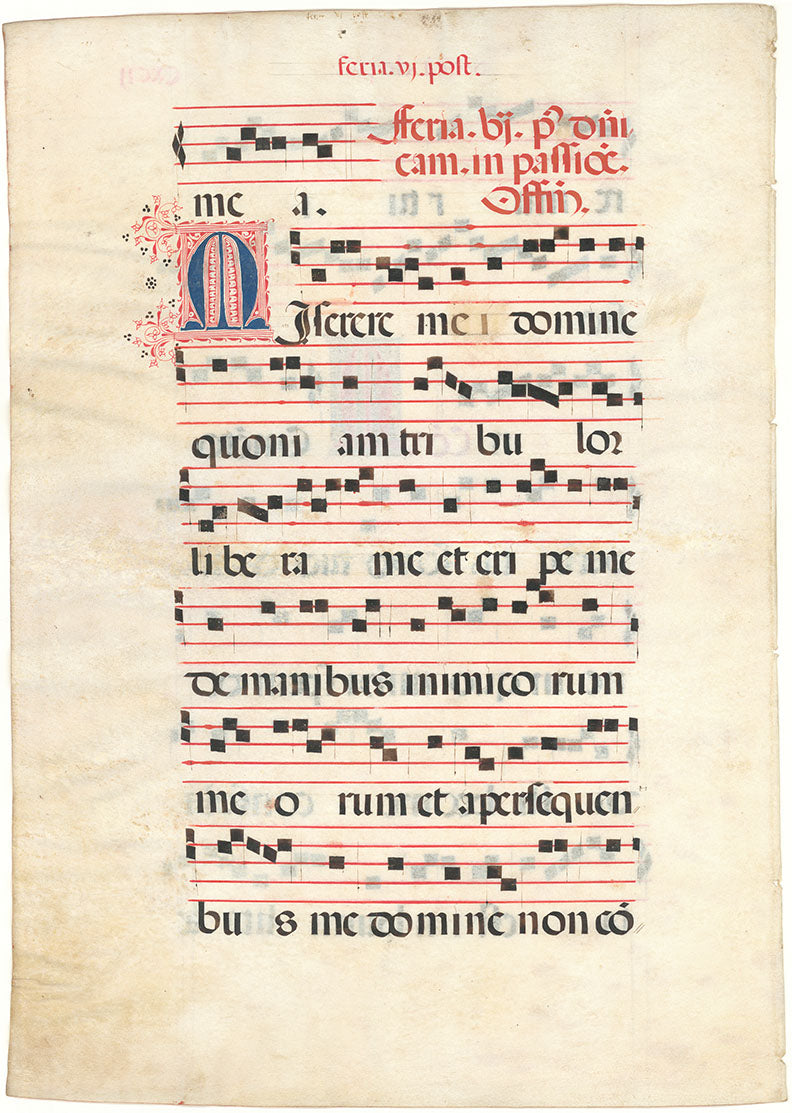 feria.vj.post.
fferia.vj. p9 dñi
cam.in passiõe.
Offm̃.
me a.
MIserere mei domine
quoni am tri bu lor
li be ra me et eri pe me
de manibus inimico rum
me o rum et a persequen
bu s me domine non cõ